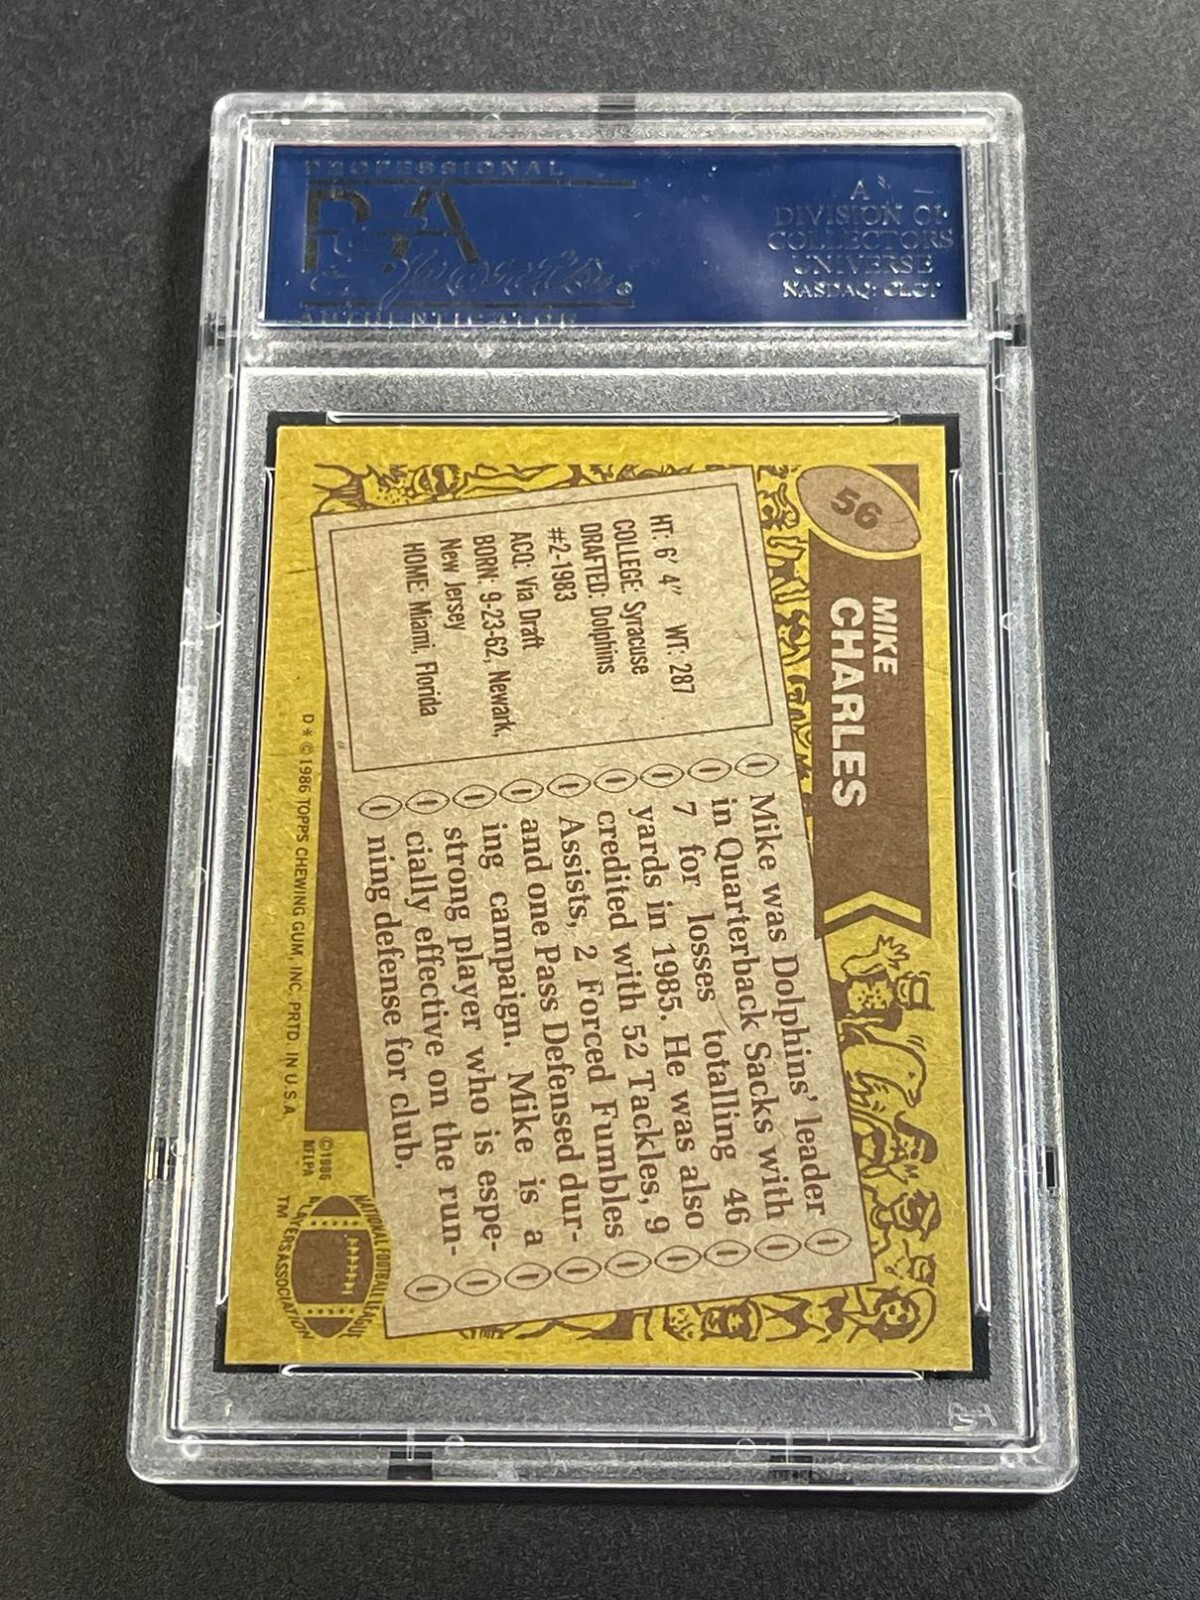 PROFESSIONAL
PSA
AUTHENTICATOR
A
DIVISION OF
COLLECTORS
UNIVERSE
NASDAQ: CLCT
56
MIKE
CHARLES
HT: 6' 4" WT: 287
COLLEGE: Syracuse
DRAFTED: Dolphins
#2-1983
ACQ: Via Draft
BORN: 9-23-62, Newark,
New Jersey
HOME: Miami, Florida
Mike was Dolphins' leader
in Quarterback Sacks with
7 for losses totalling 46
yards in 1985. He was also
credited with 52 Tackles, 9
Assists, 2 Forced Fumbles
and one Pass Defensed dur-
ing campaign. Mike is a
strong player who is espe-
cially effective on the run-
ning defense for club.
D*©1986 TOPPS CHEWING GUM, INC. PRTD. IN U.S.A.
©1986
NFLPA
NATIONAL FOOTBALL LEAGUE
PLAYERS ASSOCIATION
TM
PSA